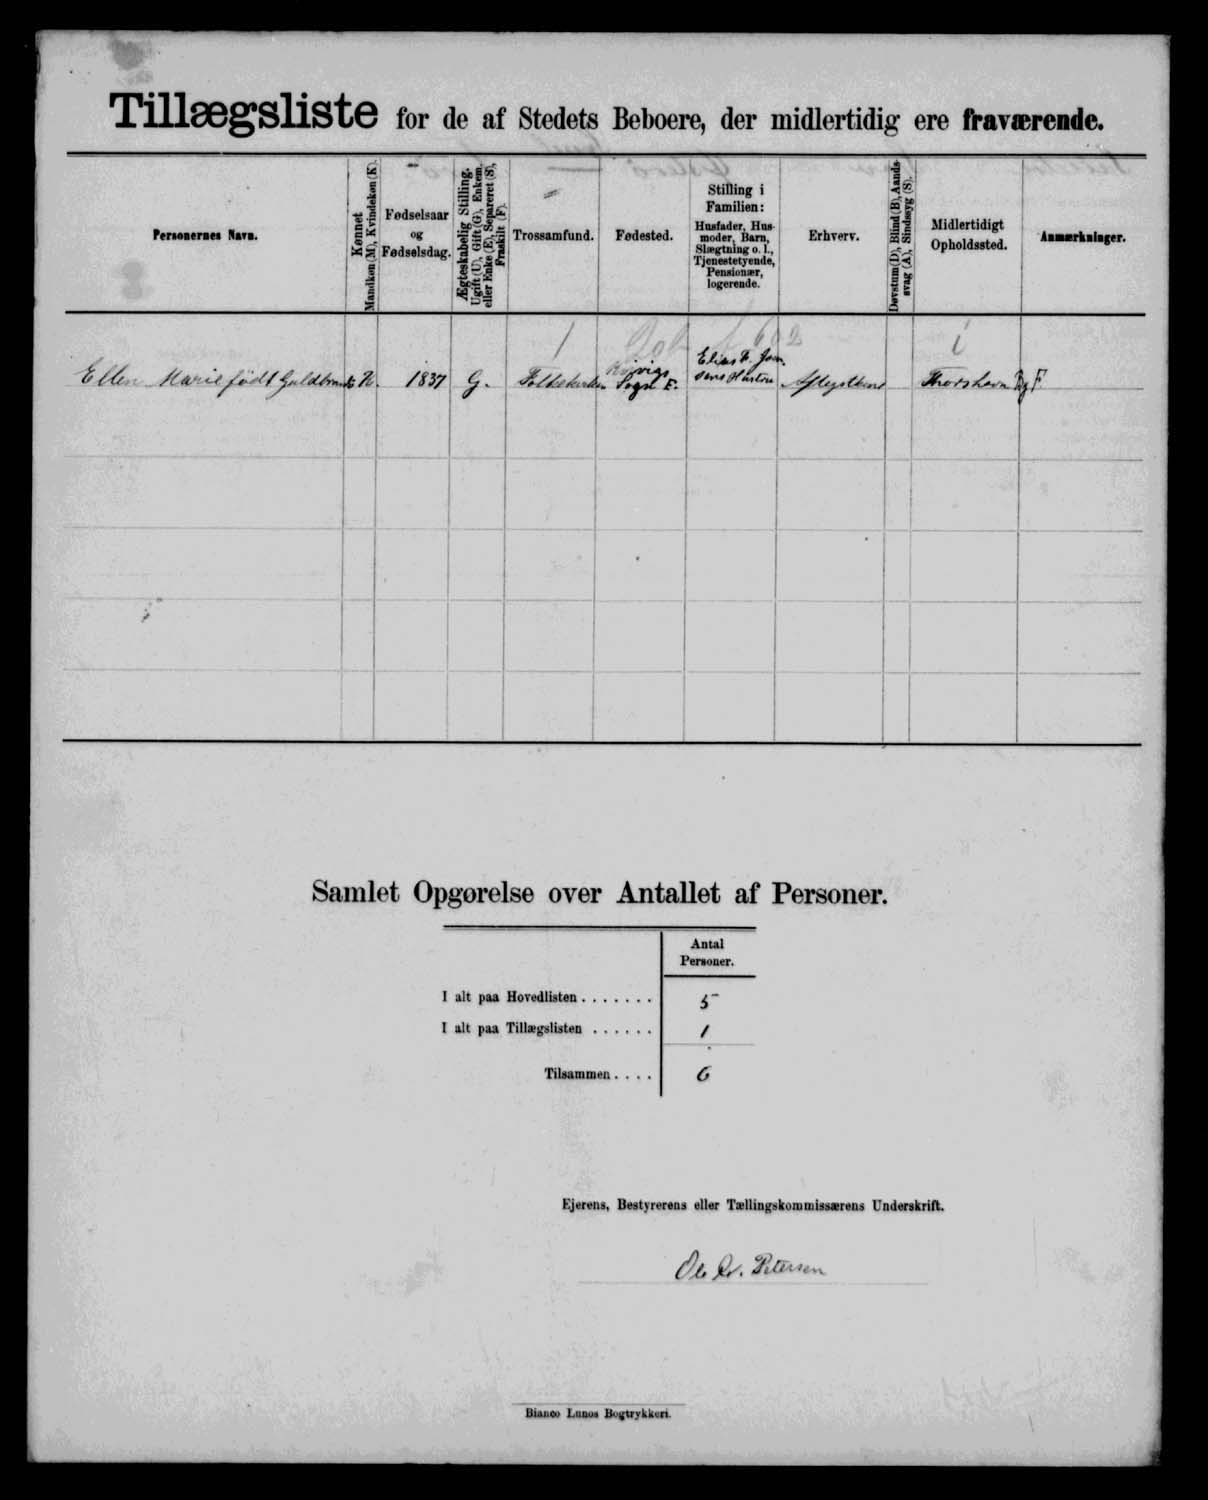 Tillægsliste for de af Stedets Beboere, der midlertidig ere fraværende.
Personernes Navn.
Kønnet
Mandkøn (M), Kvindekøn (K).
Fødselsaar
og
Fødselsdag.
Ægteskabelig Stilling.
Ugift (U), Gift (G), Enkem.
eller Enke (E), Separeret (S),
Fraskilt (F).
Trossamfund.
Fødested.
Stilling i
Familien:
Husfader, Hus-
moder, Barn,
Slægtning o. l.,
Tjenestetyende,
Pensionær,
logerende.
Erhverv.
Døvstum (D), Blind (B), Aands-
svag (A), Sindssyg (S).
Midlertidigt
Opholdssted.
Anmærkninger.
Ellen Marie født Guldbrands K. 1837 G. Folkekirken Sogn F. Elias F. Joen-
sens Hustru Aftægtkone Thorshavn
Samlet Opgørelse over Antallet af Personer.
Antal
Personer.
I alt paa Hovedlisten . . . . . . . 5
I alt paa Tillægslisten . . . . . . 1
Tilsammen . . . . 6
Ejerens, Bestyrerens eller Tællingskommissærens Underskrift.
Ole Petersen
Bianco Lunos Bogtrykkeri.